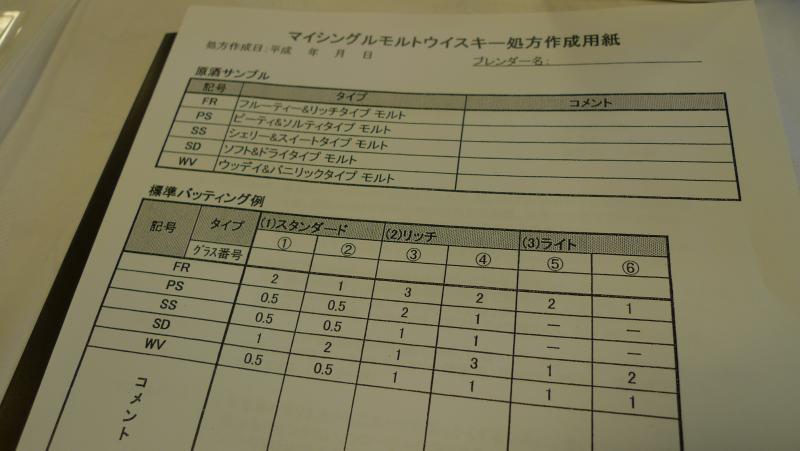 マイシングルモルトウイスキー処方作成用紙
処方作成日:平成　年　月　日
ブレンダー名:
原酒サンプル
記号 タイプ コメント
FR フルーティー&リッチタイプ モルト
PS ピーティ&ソルティタイプ モルト
SS シェリー&スイートタイプ モルト
SD ソフト&ドライタイプ モルト
WV ウッディ&バニリックタイプ モルト
標準バッティング例
記号 タイプ (1)スタンダード (2)リッチ (3)ライト
グラス番号 ① ② ③ ④ ⑤ ⑥
FR 2 1 3 2 2 1
PS 0.5 0.5 2 1 — —
SS 0.5 0.5 1 1 — —
SD 1 2 1 3 1 2
WV 0.5 0.5 1 1 1 1
コメント